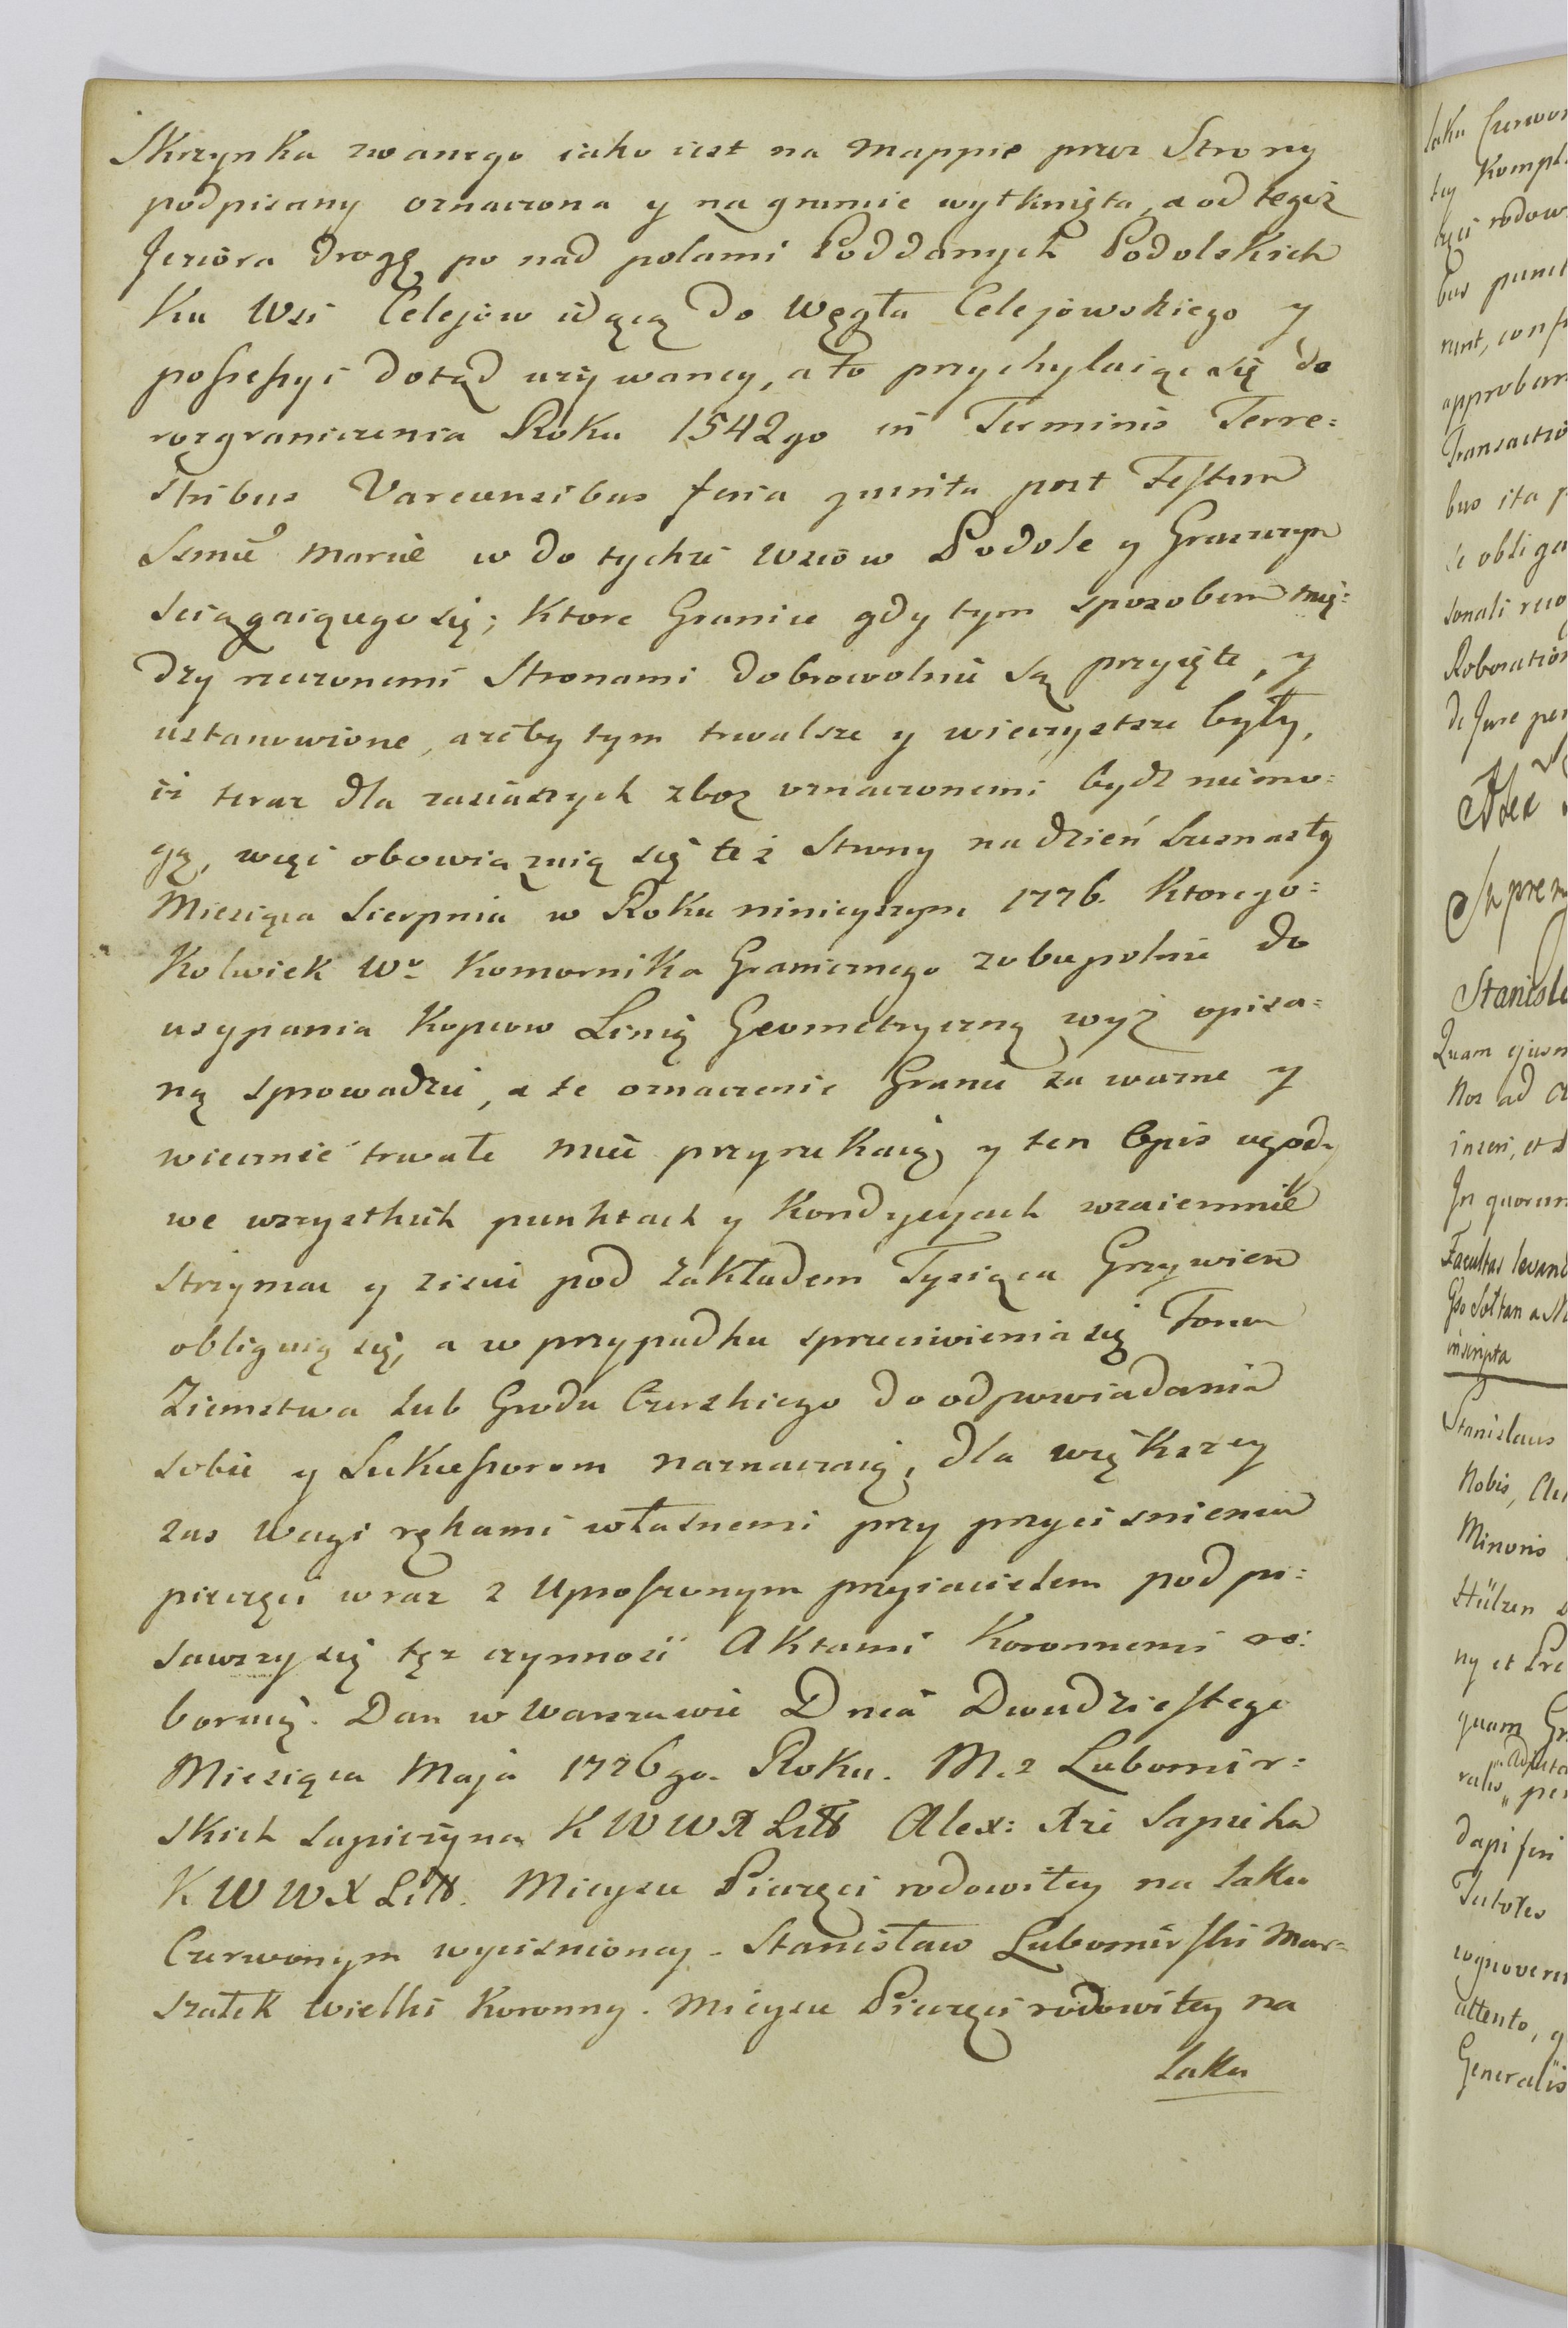 Skrzynka zwanego iako iest na Mappie przez Strony
podpisany oznaczona y na gruncie wytknięta, a od tegoż
Jeziora drogą po nad polami Poddanych Podolskich
Ku Wsi Celejow idącą do Węgła Celejowskiego y
possessyi dotąd używaney, a to przychylaiąc się do
rozgraniczenia Roku 1542go in Terminis Terre=
stribus Varcensibus feria quinta post Festum
Ssmae Mariae w do tychże Wsiow Podole y Graczyn
sciągaiącego się; Ktore Granice gdy tym sposobem mię=
dzy rzeczonemi Stronami dobrowolnie są przyięte, y
ustanowione, ażeby tym trwalsze y wieczystsze były,
iż teraz dla zasiałych zboz oznaczonemi bydź niemo=
gą, więc obowiązuią się też Strony na dzień Osmnasty
Miesiąca Sierpnia w Roku ninieyszym 1776. Ktorego=
Kolwiek Wo Komornika Granicznego zobupolnie do
usypania Kopcow Linią Geometryczną wyż opisa=
ną sprowadzić, a te oznaczenie Granic za wazne y
wiecznie trwałe mieć przyrzekaią, y ten Opis ugody
we wszystkich punktach y Kondycyach wzaiemnie
strzymac y zisció pod zakładem Tysiąca Grzywien
obliguią się, a w przypadku sprzeciwienia się Forum
Ziemstwa lub Grodu Czerskiego do odpowiadania
sobie y Sukcessorom naznaczaią, dla większey
zas Wagi rękami własnemi przy przycisnieniu
pieczęci wraz z Uproszonym przyiacielem podpi=
sawszy się tęż czynność Aktami Koronnemi ro=
boruią. Dan w Warszawie Dnia Dwudziestego
Miesiąca Maja 1776go. Roku. M. z Lubomir=
skich Sapieżyna K W W X Litt Alex: Xże Sapieha
K W W X Litt. Mieysce Pieczęci rodowitey na laku
Czerwonym wycisnioney - Stanisław Lubomirski Mar=
szałek Wielki Koronny. Mieysce Pieczęci rodowitey na
laku